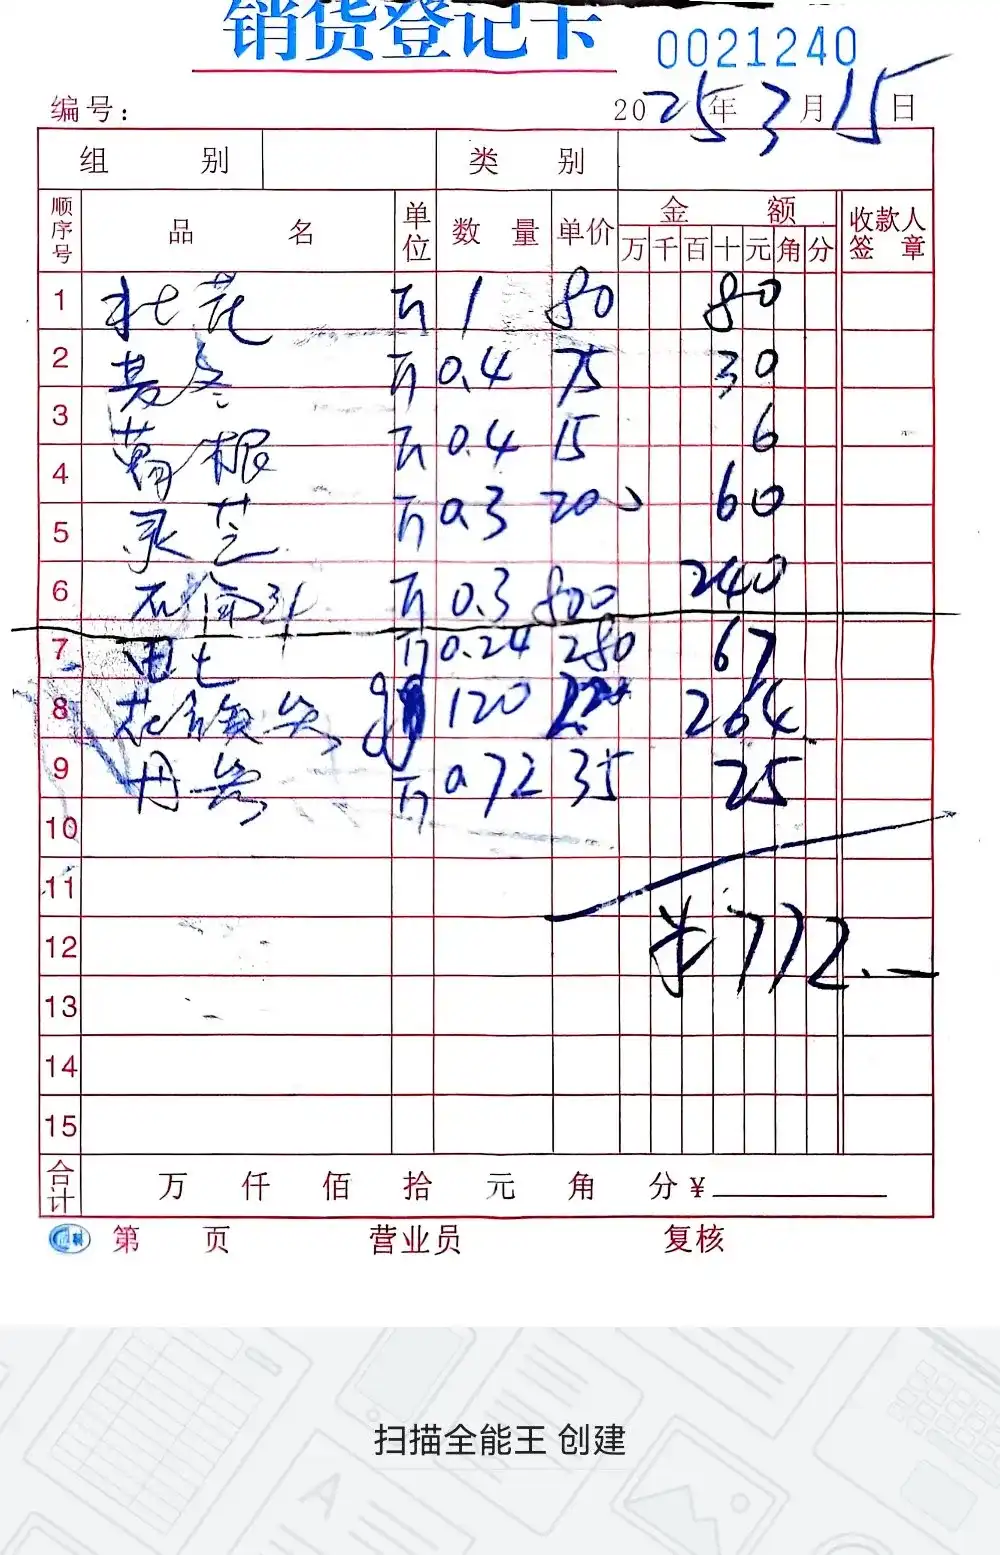 销货登记卡
0021240
编号: 2025年3月15日
组别 类别
顺序号 品名 单位 数量 单价 金额 收款人签章
万 千 百 十 元 角 分
1 杜花 斤 1 80 80
2 麦冬 斤 0.4 75 30
3 葛根 斤 0.4 15 6
4 灵芝 斤 0.3 200 60
5
6 石斛 斤 0.3 800 240
7 田七 斤 0.24 280 67
8 花旗参 g 120 2.20 264
9 丹参 斤 0.72 35 25
10
11
12 ¥772.—
13
14
15
合计 万 仟 佰 拾 元 角 分¥
第 页 营业员 复核
扫描全能王 创建